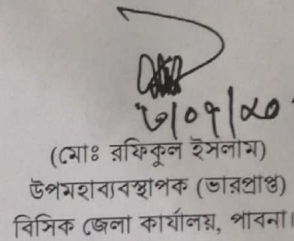 (মোঃ রফিকুল ইসলাম)
উপমহাব্যবস্থাপক (ভারপ্রাপ্ত)
বিসিক জেলা কার্যালয়, পাবনা।